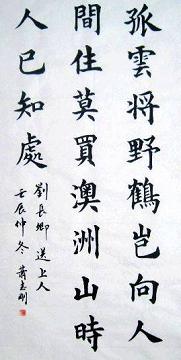 孤雲将野鶴岂向人
間住莫買澳洲山時
人已知處
劉長卿 送上人
壬辰仲冬 蕭志剛